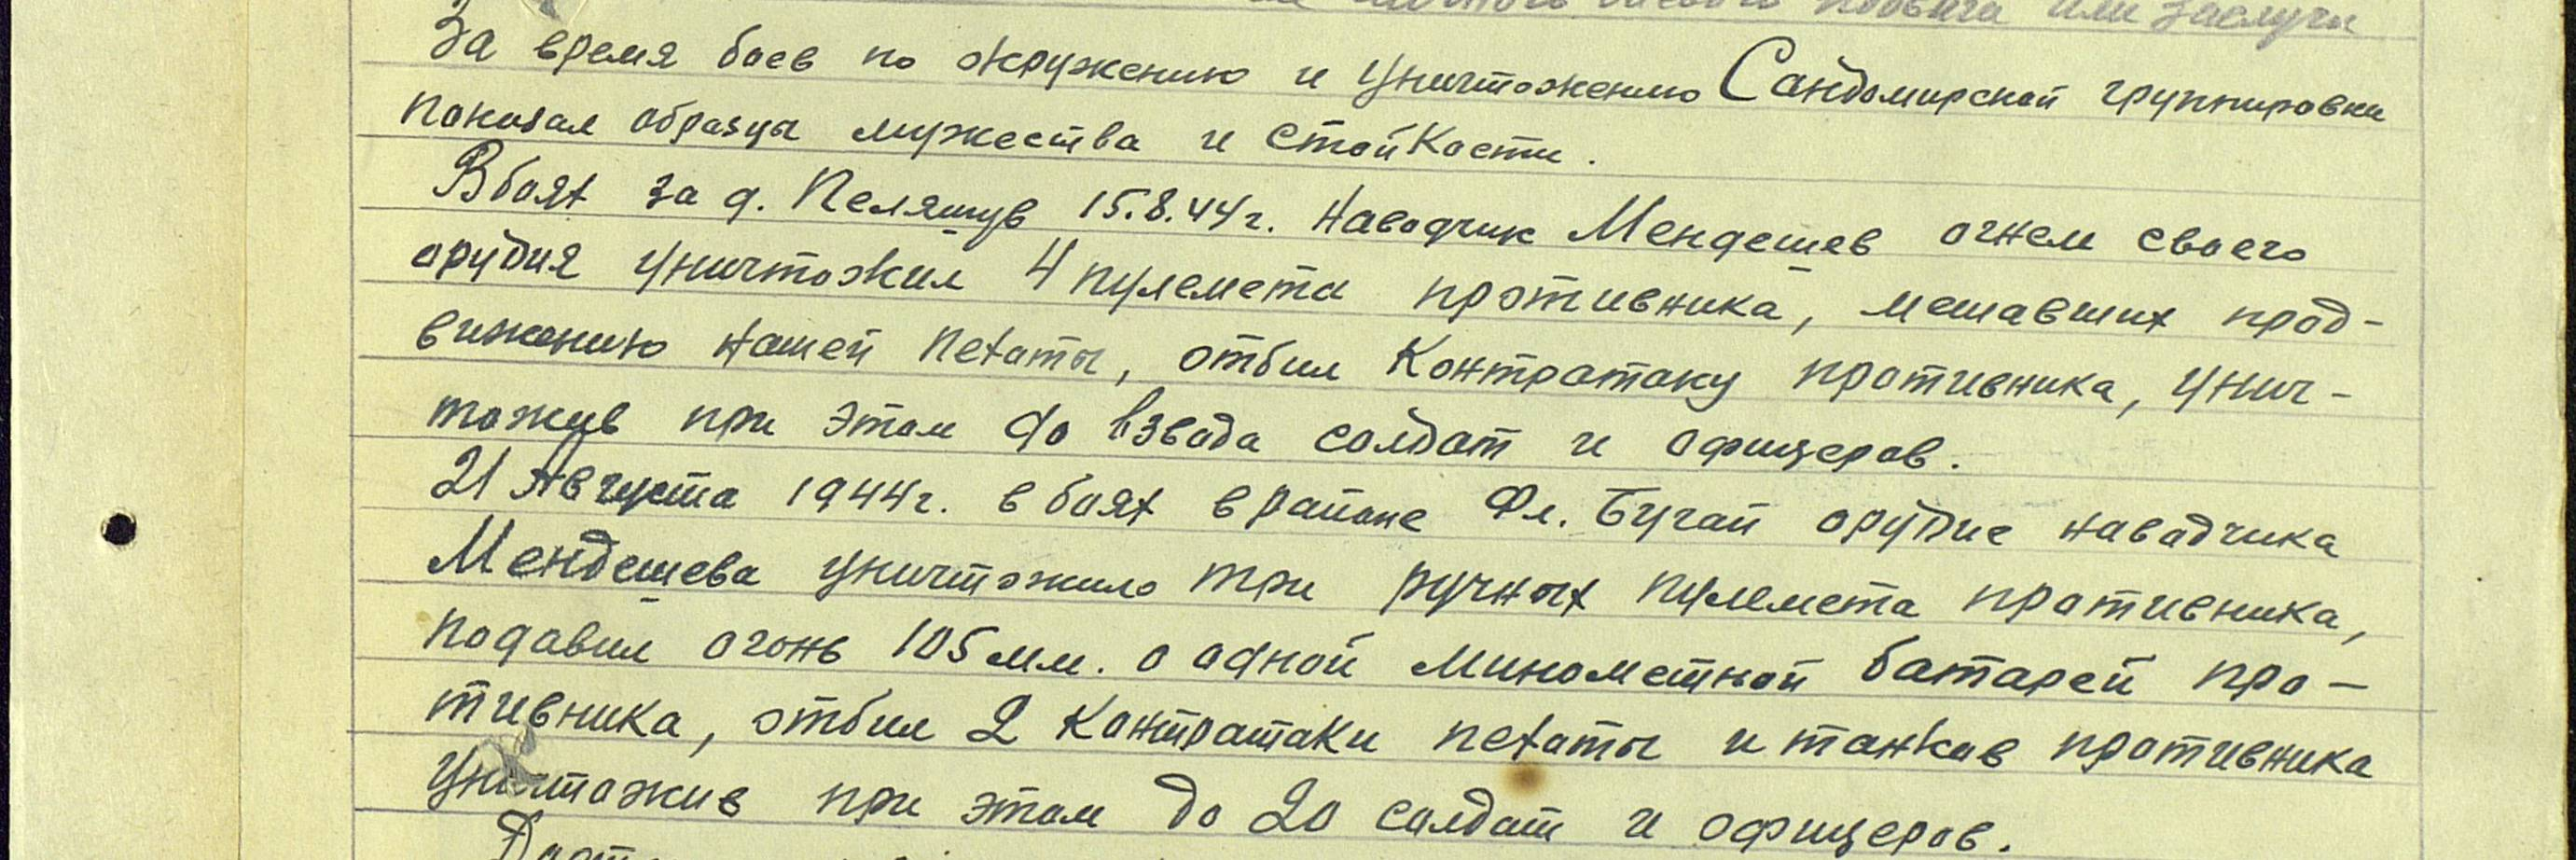 боевого подвига или заслуги
За время боев по окружению и уничтожению Сандомирской группировки
показал образцы мужества и стойкости.
В боях за д. Пеляшув 15.8.44г. наводчик Мендешев огнем своего
орудия уничтожил 4 пулемета противника, мешавших прод-
вижению нашей пехоты, отбил контратаку противника, унич-
тожив при этом до взвода солдат и офицеров.
21 Августа 1944г. в боях в районе Фл. Бугай орудие наводчика
Мендешева уничтожило три ручных пулемета противника,
подавил огонь 105 мм. о одной минометной батарей про-
тивника, отбил 2 контратаки пехоты и танков противника
уничтожив при этом до 20 солдат и офицеров.